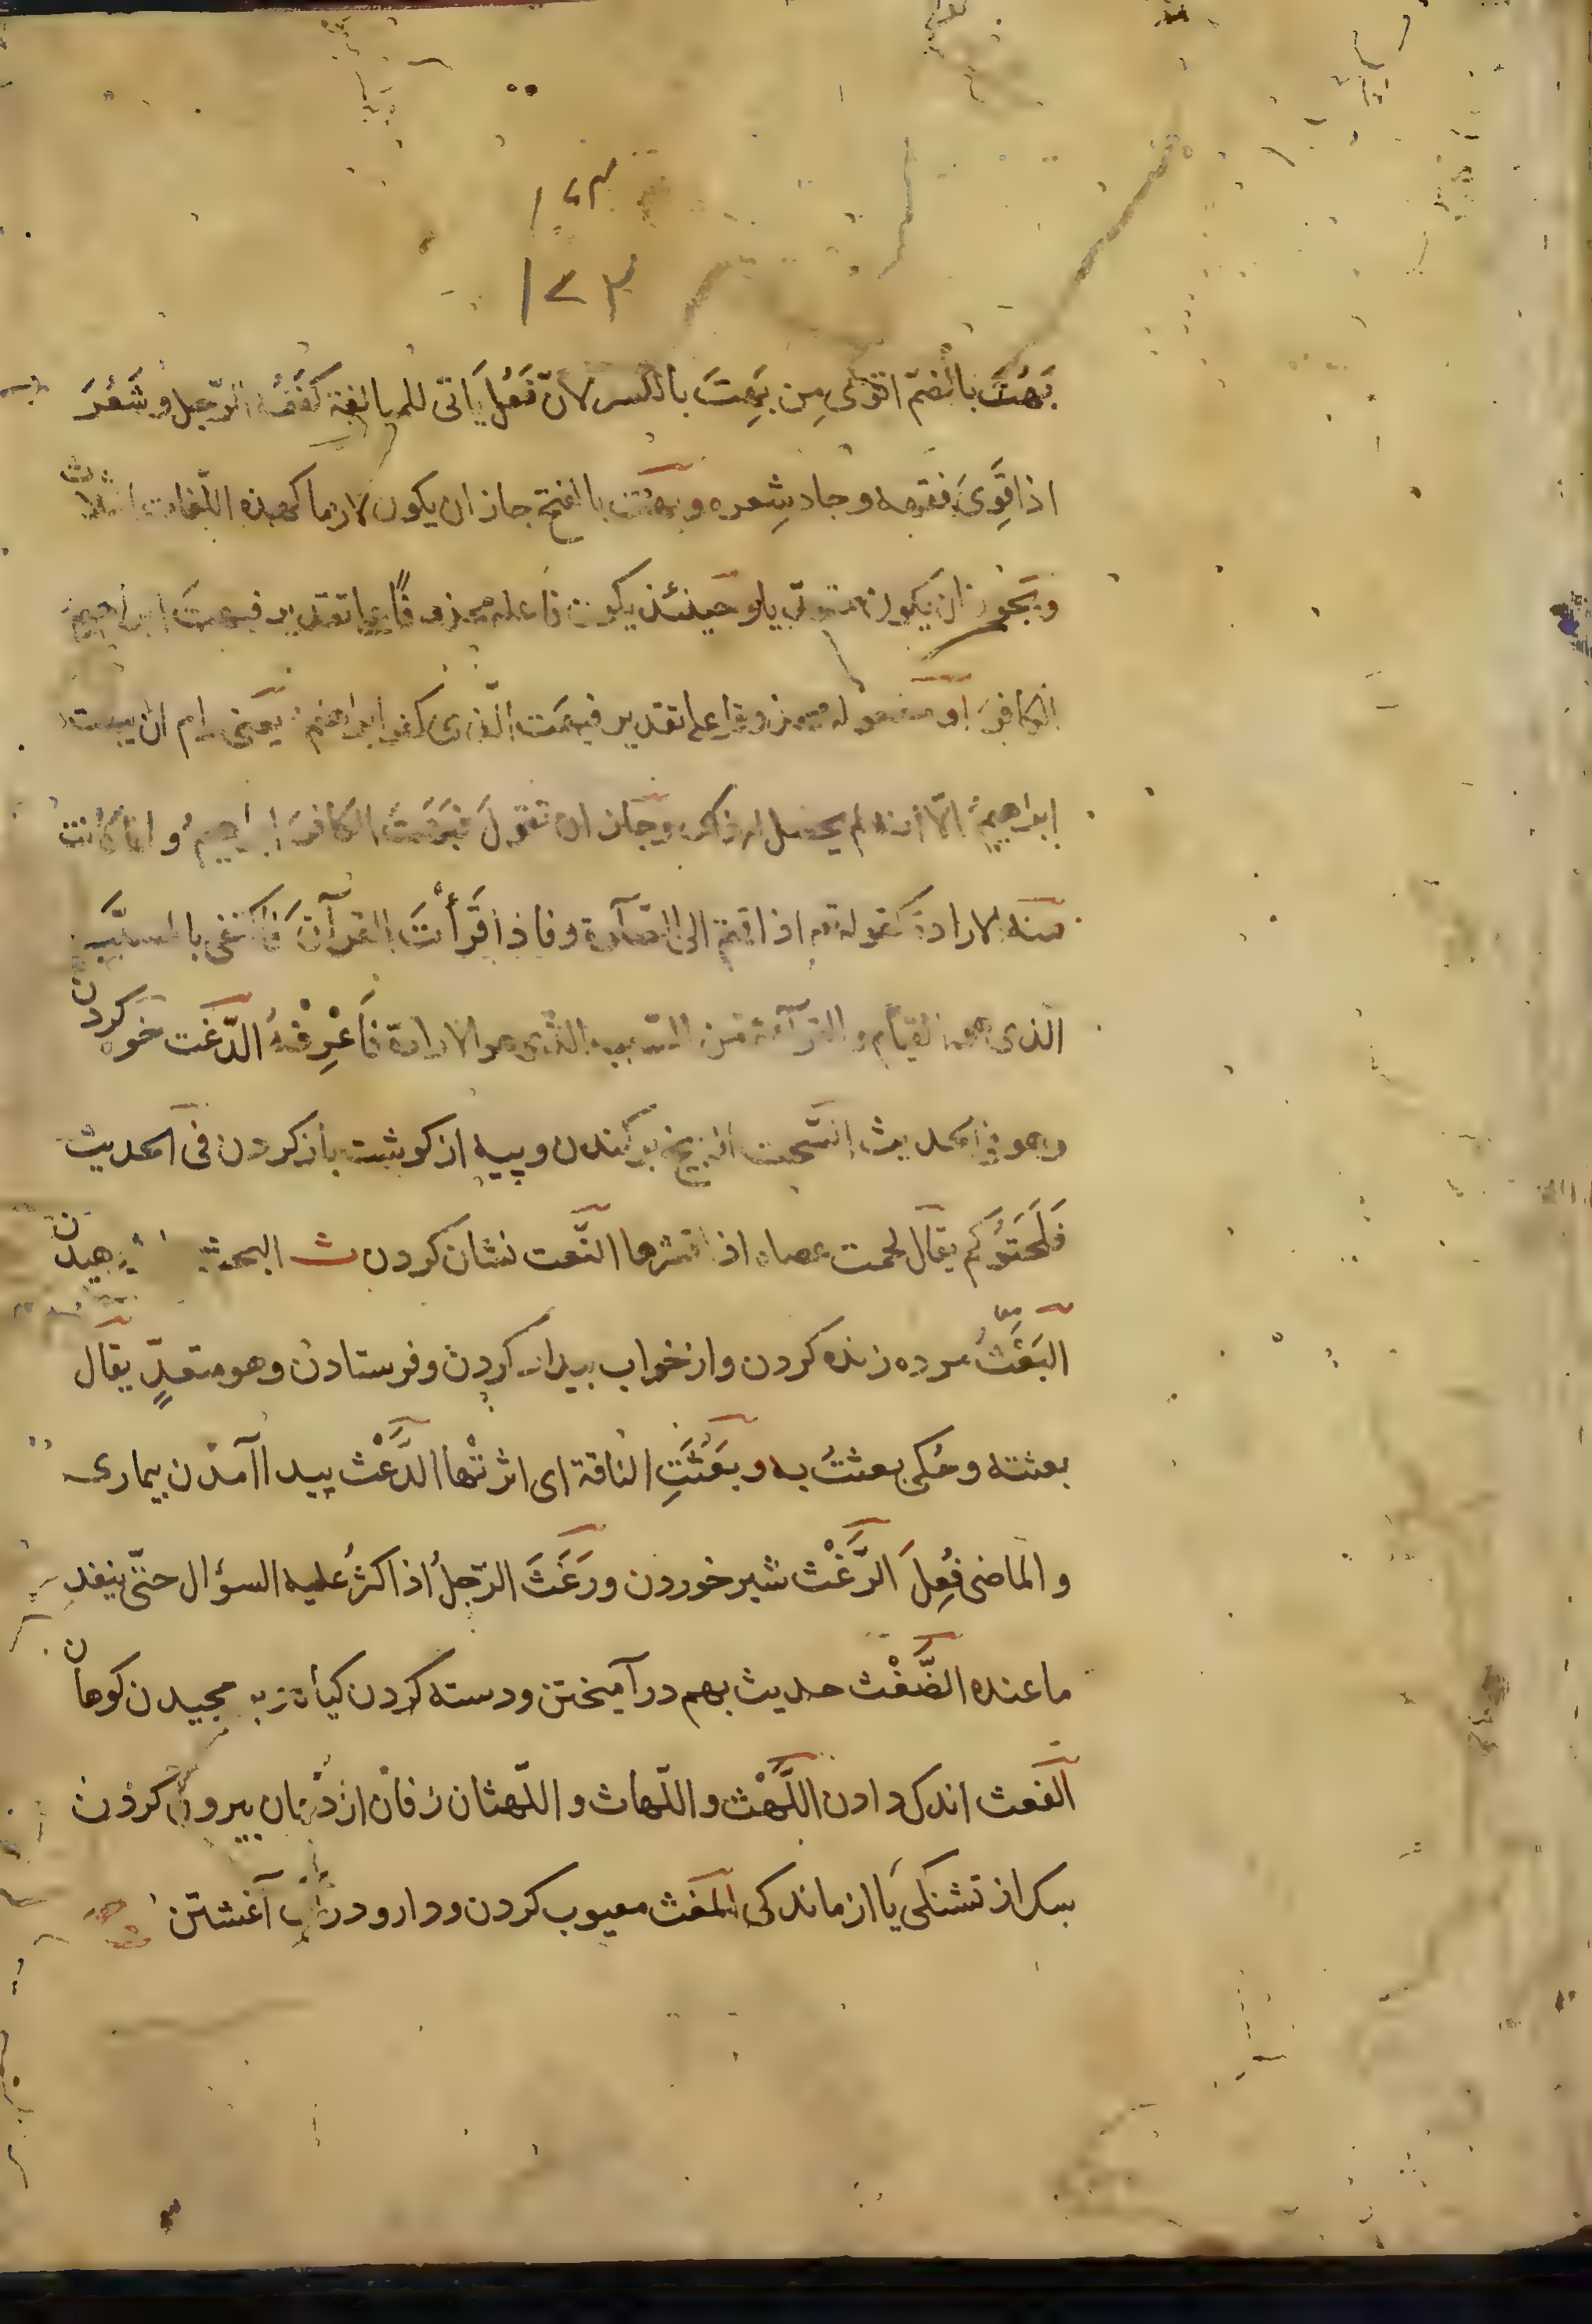 ١٧٣
١٧٣
بَهُتَ بالضمّ اقوى مِن بَهِتَ بالكسر لانّ فَعُلَ يَاتى للمبالغة كَفَقُهَ الرّجل و شَعُرَ
اذا قَوِىَ فقهه و جاد شِعره و بهَت بالفتح جاز ان يكون لازما كهذه اللّغات الثلاث
و يَجُوز ان يكون متعدّيا و حينئذ يكون فاعله محذوفًا على تقدير فبهتَ ابراهيمُ
الكافرَ او مفعوله محذوفا على تقدير فبهَت الّذى كفر ابراهيم يعنى رام ان يبهت
ابراهيمَ الّا انه لم يحصل له ذلك و جاز ان تقولَ فبَهَتَ الكافرَ ابراهيمُ و ان كانت
منه لارادة كقوله تع اذا قمتم الى الصّلوة و فاذا قَرَأْتَ القرآنَ فاكتفى بالمسبَّب
الذى هو القيام و القرآءة من السّبب الّذى هو الارادة فَاعْرِفْهُ الدّغت خوه كردن
و هو فى الحديث السَّحت از بيخ بركندن و پيه از كوشت باز كردن فى الحديث
فَلَحَتُوكُم يقال لحت عصاه اذا قشرها النَّعت نشان كردن ث البحث
البَعْثُ مرده زنده كردن و از خواب بيدار كردن و فرستادن و هو متعدٍّ يقال
بعثته و حُكى بعثتُ به و بَعَثَتِ الناقة اى اثرتها الدَّعْث پيدا آمدن بيمارى
و الماضى فُعِلَ الرَّغْث شير خوردن و رَغَثَ الرّجلُ اذا اكثرُ عليه السؤال حتّى ينفد
ما عنده الضَّغْث حديث بهم در آميختن و دسته كردن كياه و به مجيدن كوهان
القعث اندك دادن اللَّهْث و اللّهاث و اللّهثان زفان از دهان بيرون كردن
سك از تشنكى يا از ماندكى المَغث معيوب كردن و دارو در آب آغشتن